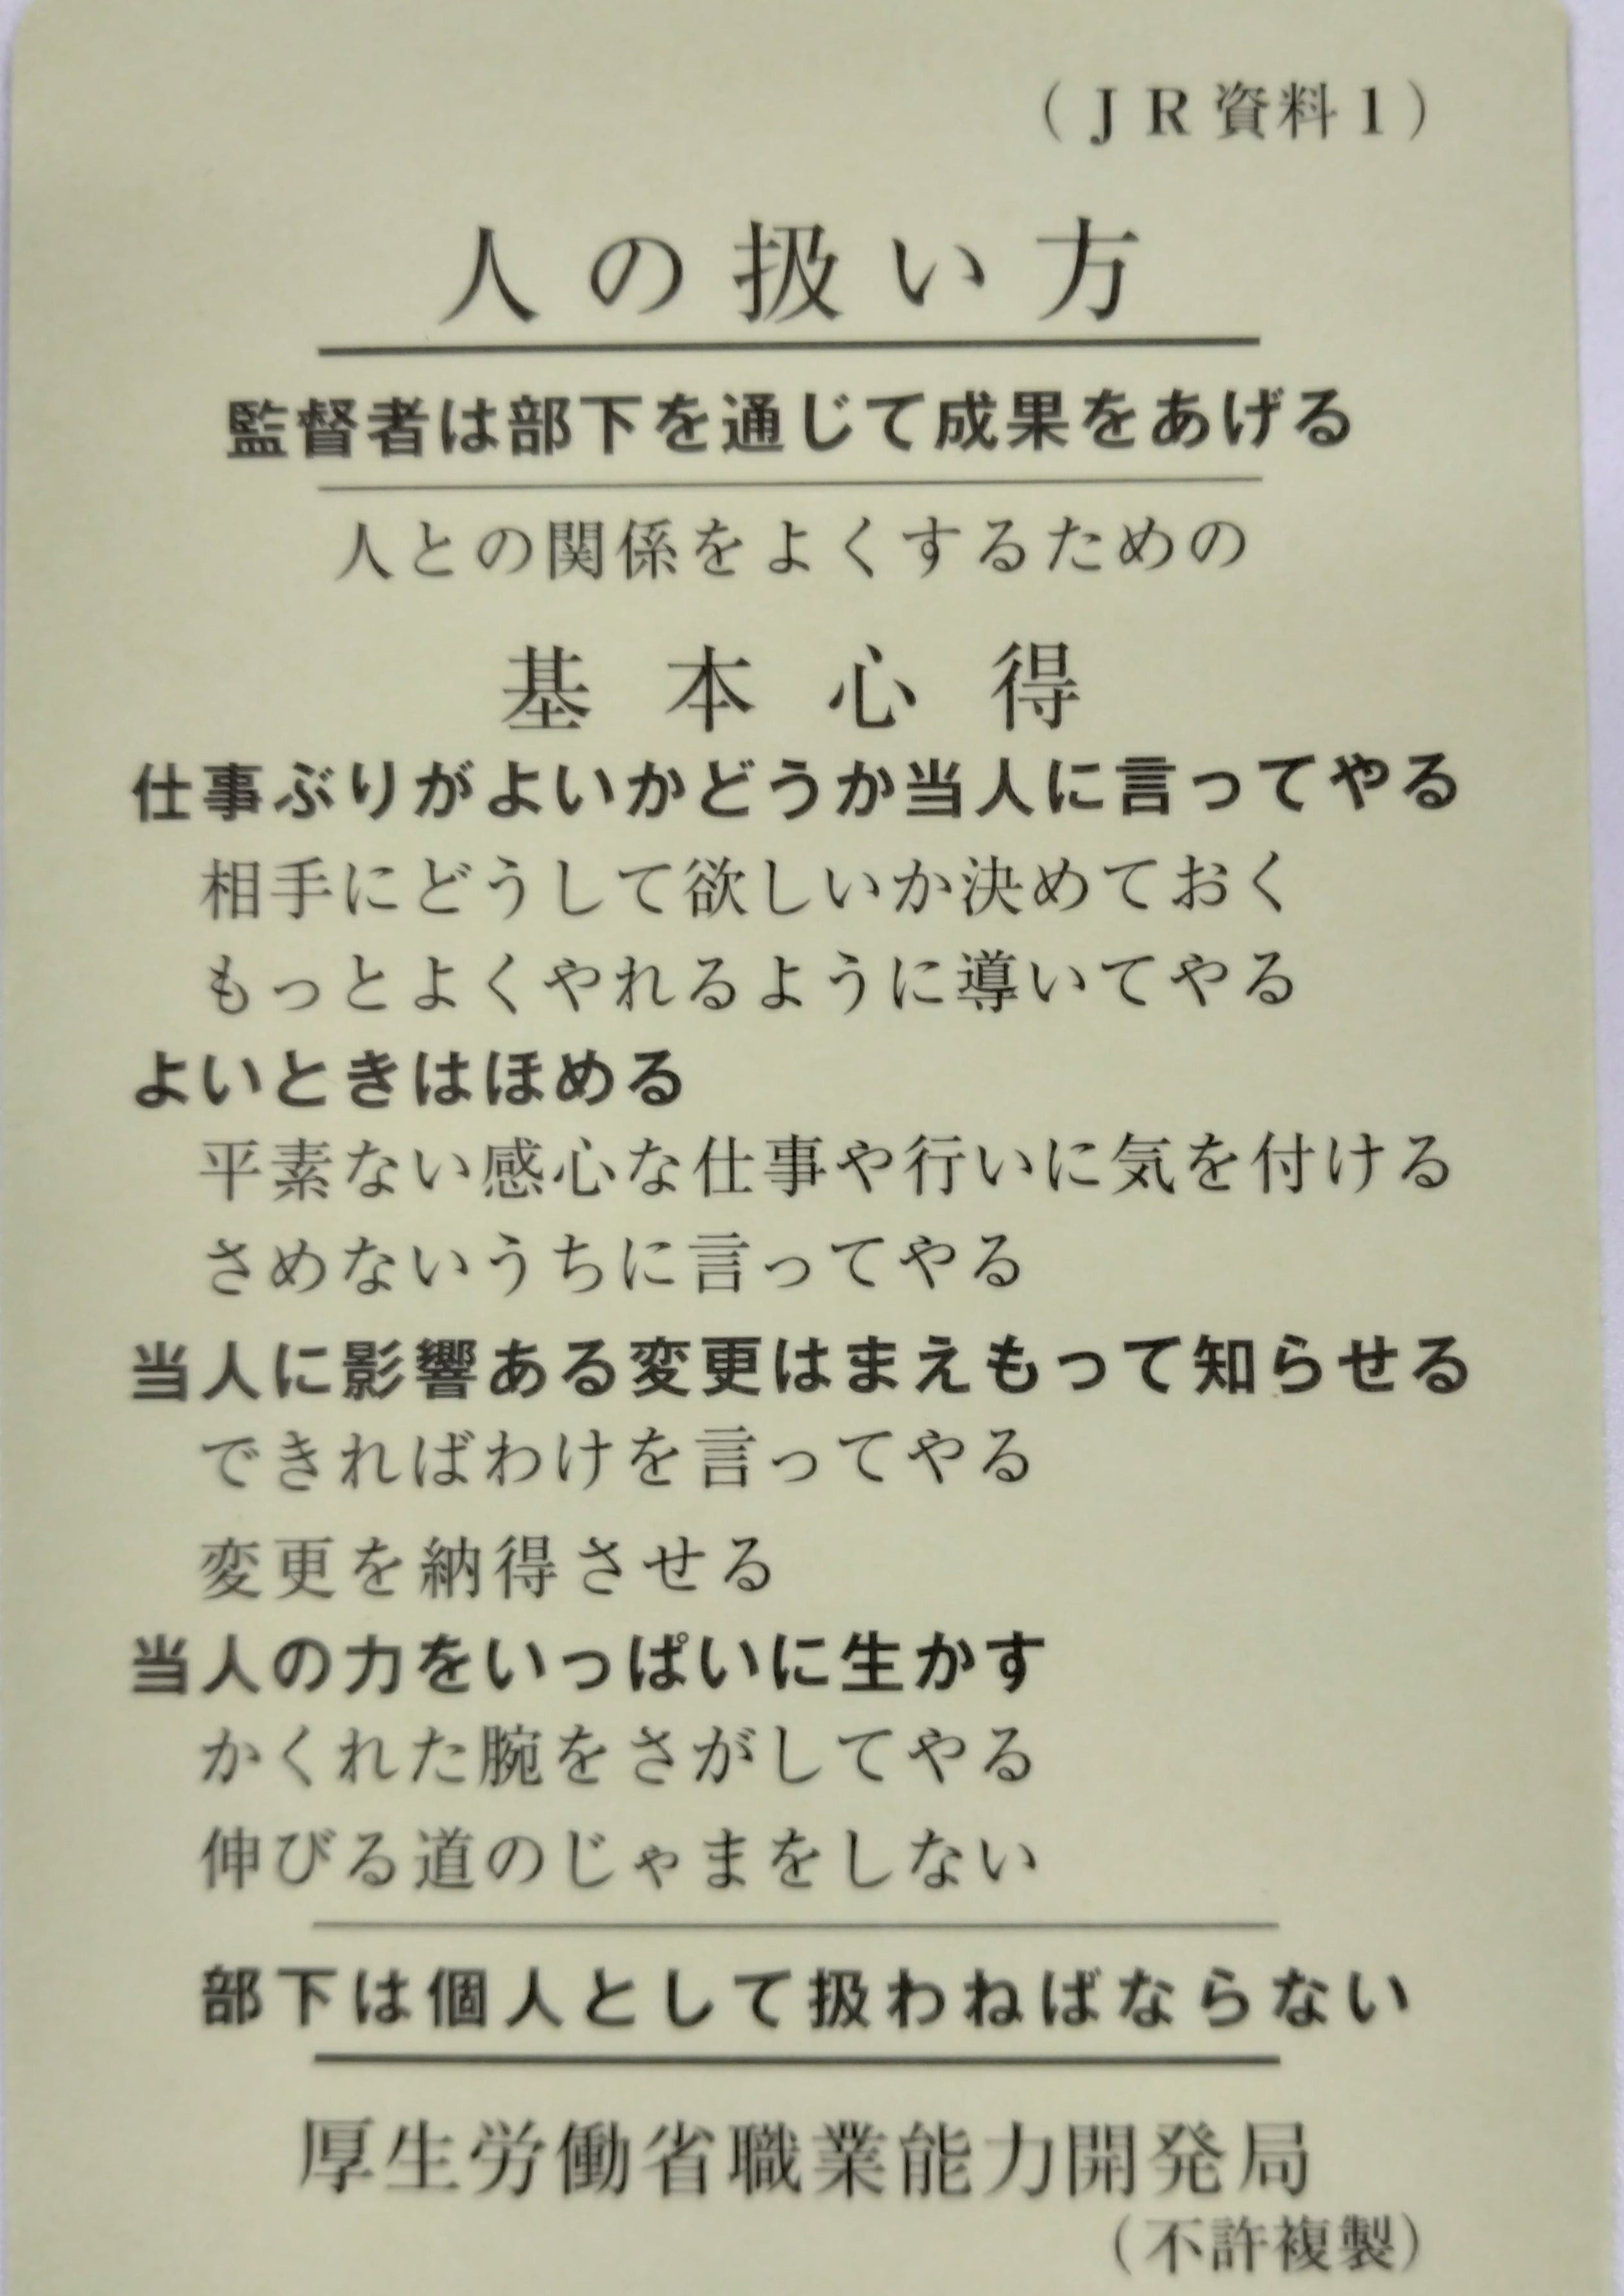 （ＪＲ資料１）
人の扱い方
監督者は部下を通じて成果をあげる
人との関係をよくするための
基本心得
仕事ぶりがよいかどうか当人に言ってやる
相手にどうして欲しいか決めておく
もっとよくやれるように導いてやる
よいときはほめる
平素ない感心な仕事や行いに気を付ける
さめないうちに言ってやる
当人に影響ある変更はまえもって知らせる
できればわけを言ってやる
変更を納得させる
当人の力をいっぱいに生かす
かくれた腕をさがしてやる
伸びる道のじゃまをしない
部下は個人として扱わねばならない
厚生労働省職業能力開発局
（不許複製）